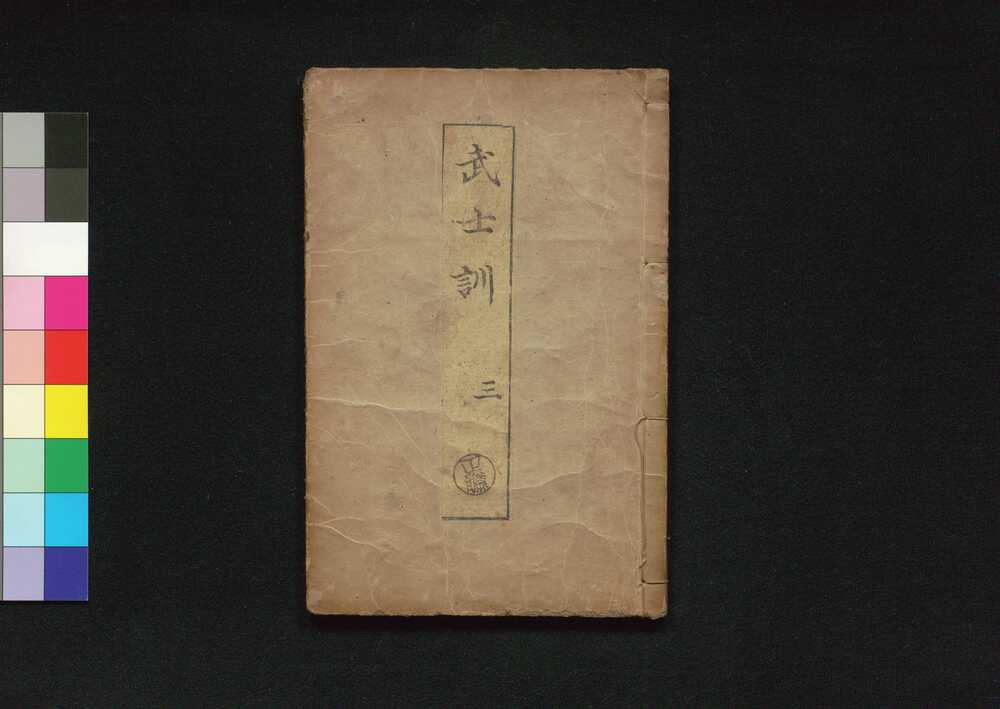 武士訓
三